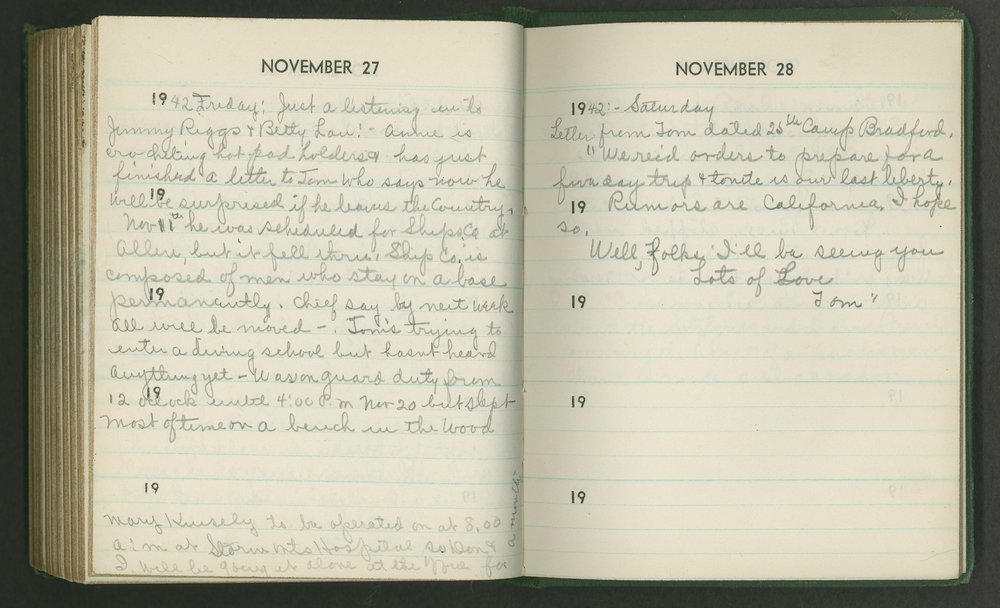 NOVEMBER 27
1942 Friday: Just a listening in to
Jimmy Riggs & Betty Lou! - Annie is
crocheting hot pad holders & has just
finished a letter to Tom who says now he
19
will be surprised if he leaves the Country.
Nov 11th he was scheduled for Ships Co at
Allen, but it fell thru! Ship Co. is
composed of men who stay on a base
19
permanently. Chief say by next week
all will be moved -. Tom's trying to
enter a diving school but hasnt heard
anything yet - Was on guard duty from
19
12 oclock until 4:00 P.m Nov 20 but slept
most of time on a bench in the wood
19
Mary to be operated on at 8.00
a.m at Hospital so Don &
I will be going it alone at the for
a month
NOVEMBER 28
1942:- Saturday
Letter from Tom dated 25th Camp Bradford.
"We rec'd orders to prepare for a
five day trip & tonite is our last liberty.
19 Rumors are California. I hope
so.
Well, folks, I'll be seeing you
Lots of Love
19 Tom"
19
19